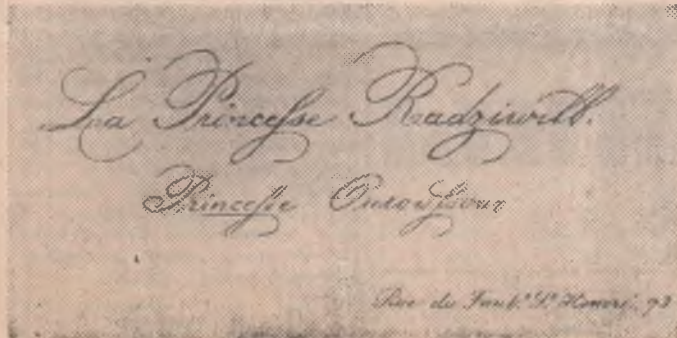 La Princesse Radziwill.
Princesse
Rue du Faub.g S.t Honoré. 93